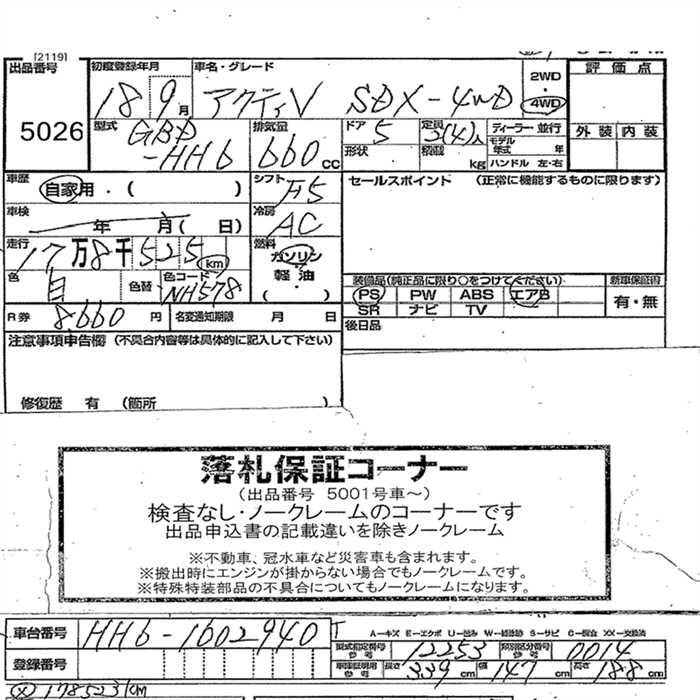 [2119]
出品番号
5026
初度登録年月
18 9月
車名・グレード
アクティV SDX-4WD
2WD
・
4WD
評価点
外装 内装
型式
GBD
-HH6
排気量
660 cc
ドア
5
形状
定員
2(4)人
積載
kg
ディーラー・並行
モデル
年式 年
ハンドル 左・右
車歴
自家用・( )
シフト
F5
セールスポイント (正常に機能するものに限ります)
車検
年 月( 日)
冷房
AC
走行
17万8千525 km
燃料
ガソリン
軽・油
・( )
色
白
色替
色コード
NH578
装備品(純正品に限り○をつけてください)
PS PW ABS エアB
SR ナビ TV
新車保証書
有・無
R券
8,660 円
名変通知期限 月 日
後日品
注意事項申告欄 (不具合内容等は具体的に記入して下さい)
修復歴 有 (箇所 )
落札保証コーナー
(出品番号 5001号車～)
検査なし・ノークレームのコーナーです
出品申込書の記載違いを除きノークレーム
※不動車、冠水車など災害車も含まれます。
※搬出時にエンジンが掛からない場合でもノークレームです。
※特殊特装部品の不具合についてもノークレームになります。
車台番号
HH6-1602940
登録番号
A-キズ E-エクボ U-凹み W-補修跡 S-サビ C-腐食 XX-交換済
型式指定番号
参考
12253
類別区分番号
参考
0014
車庫証明用
参考
長さ 339 cm 幅 147 cm 高さ 188 cm
178523km